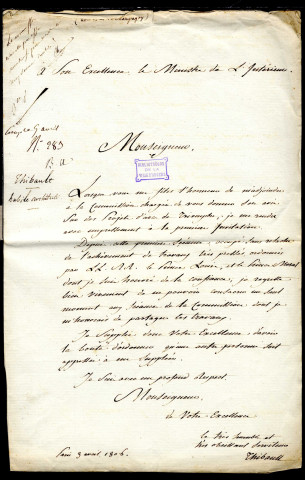 A Son Excellence, le Ministre de L'Intérieur.
N° 283
B A
Monseigneur,
Thibault
Lorsque vous me fîtes l'honneur de m'adjoindre
à la Commission chargée de vous donner son avis
sur des Projets d'arc de Triomphe, je me rendis
avec empressement à la première invitation.
Depuis cette première Séance, occupé sans relache
de l'achevement de travaux très pressés ordonnés
par LL. AA. le Prince Louis, et le Prince Murat
dont je suis honoré de la confiance, je regrette
bien vivement de ne pouvoir consacrer un seul
moment aux Séances de la Commission dont je
m'honorais de partager les travaux.
Je Supplie donc Votre Excellence d'avoir
la bonté d'ordonner qu'une autre personne soit
appellée à me Suppléer.
Je Suis avec un profond Respect,
Monseigneur,
de Votre Excellence
Le très humble et
très obéissant Serviteur
Paris 3 avril 1806.
Thibault